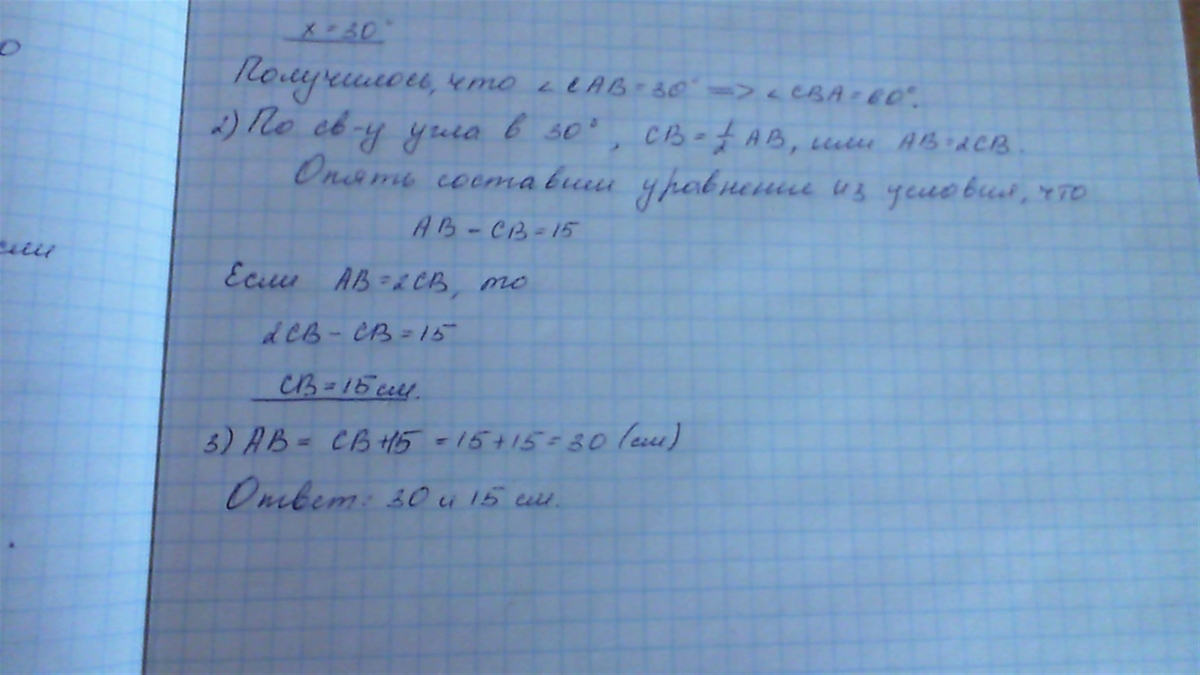 х = 30°
Получилось, что < CAB = 30° => < CBA = 60°.
2) По св-у угла в 30°, CB = 1/2 AB, или AB = 2CB.
Опять составим уравнение из условия, что
AB - CB = 15
Если AB = 2CB, то
2CB - CB = 15
CB = 15 см.
3) AB = CB + 15 = 15 + 15 = 30 (см)
Ответ: 30 и 15 см.